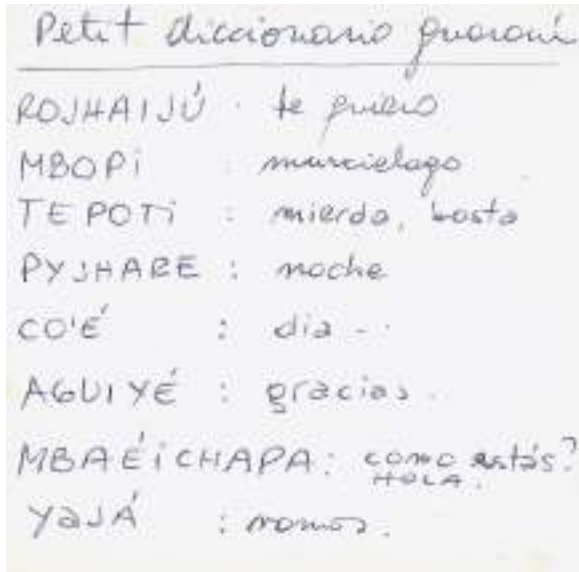 Petit diccionario guaraní
ROJHAIJÚ . te quiero
MBOPi : murcielago
TEPOTi : mierda, bosta
PYJHARE : noche
CO'É : dia - .
AGUIYÉ : gracias .
MBAÉiCHAPA : como estás?
HOLA.
YaJÁ : vamos.